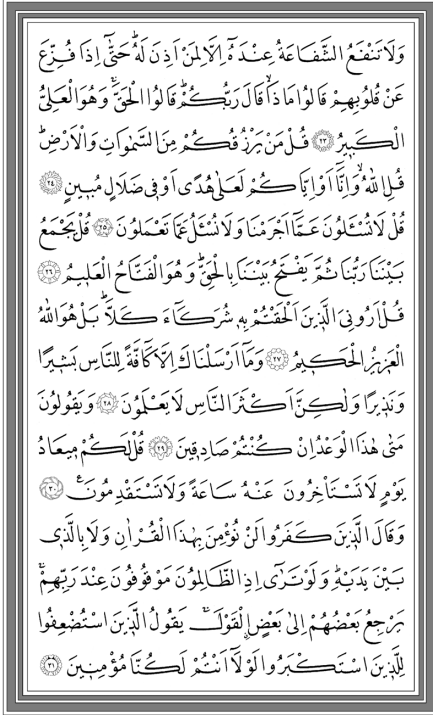 وَلَا تَنْفَعُ الشَّفَاعَةُ عِنْدَهُٓ اِلَّا لِمَنْ اَذِنَ لَهُۜ حَتّٰٓى اِذَا فُزِّعَ
عَنْ قُلُوبِهِمْ قَالُوا مَاذَاۙ قَالَ رَبُّكُمْۜ قَالُوا الْحَقَّۚ وَهُوَ الْعَلِيُّ
الْكَب۪يرُ ﴿٢٣﴾ قُلْ مَنْ يَرْزُقُكُمْ مِنَ السَّمٰوَاتِ وَالْاَرْضِۜ
قُلِ اللّٰهُۙ وَاِنَّٓا اَوْ اِيَّاكُمْ لَعَلٰى هُدًى اَوْ ف۪ي ضَلَالٍ مُب۪ينٍ ﴿٢٤﴾
قُلْ لَا تُسْـَٔلُونَ عَمَّٓا اَجْرَمْنَا وَلَا نُسْـَٔلُ عَمَّا تَعْمَلُونَ ﴿٢٥﴾ قُلْ يَجْمَعُ
بَيْنَنَا رَبُّنَا ثُمَّ يَفْتَحُ بَيْنَنَا بِالْحَقِّۜ وَهُوَ الْفَتَّاحُ الْعَل۪يمُ ﴿٢٦﴾
قُلْ اَرُونِيَ الَّذ۪ينَ اَلْحَقْتُمْ بِه۪ شُرَكَٓاءَ كَلَّاۜ بَلْ هُوَ اللّٰهُ
الْعَز۪يزُ الْحَك۪يمُ ﴿٢٧﴾ وَمَٓا اَرْسَلْنَاكَ اِلَّا كَٓافَّةً لِلنَّاسِ بَش۪يرًا
وَنَذ۪يرًا وَلٰكِنَّ اَكْثَرَ النَّاسِ لَا يَعْلَمُونَ ﴿٢٨﴾ وَيَقُولُونَ
مَتٰى هٰذَا الْوَعْدُ اِنْ كُنْتُمْ صَادِق۪ينَ ﴿٢٩﴾ قُلْ لَكُمْ م۪يعَادُ
يَوْمٍ لَا تَسْتَأْخِرُونَ عَنْهُ سَاعَةً وَلَا تَسْتَقْدِمُونَ۟ ﴿٣٠﴾
وَقَالَ الَّذ۪ينَ كَفَرُوا لَنْ نُؤْمِنَ بِهٰذَا الْقُرْاٰنِ وَلَا بِالَّذ۪ي
بَيْنَ يَدَيْهِۜ وَلَوْ تَرٰٓى اِذِ الظَّالِمُونَ مَوْقُوفُونَ عِنْدَ رَبِّهِمْۚ
يَرْجِعُ بَعْضُهُمْ اِلٰى بَعْضٍۨ الْقَوْلَۚ يَقُولُ الَّذ۪ينَ اسْتُضْعِفُوا
لِلَّذ۪ينَ اسْتَكْبَرُوا لَوْلَٓا اَنْتُمْ لَكُنَّا مُؤْمِن۪ينَ ﴿٣١﴾